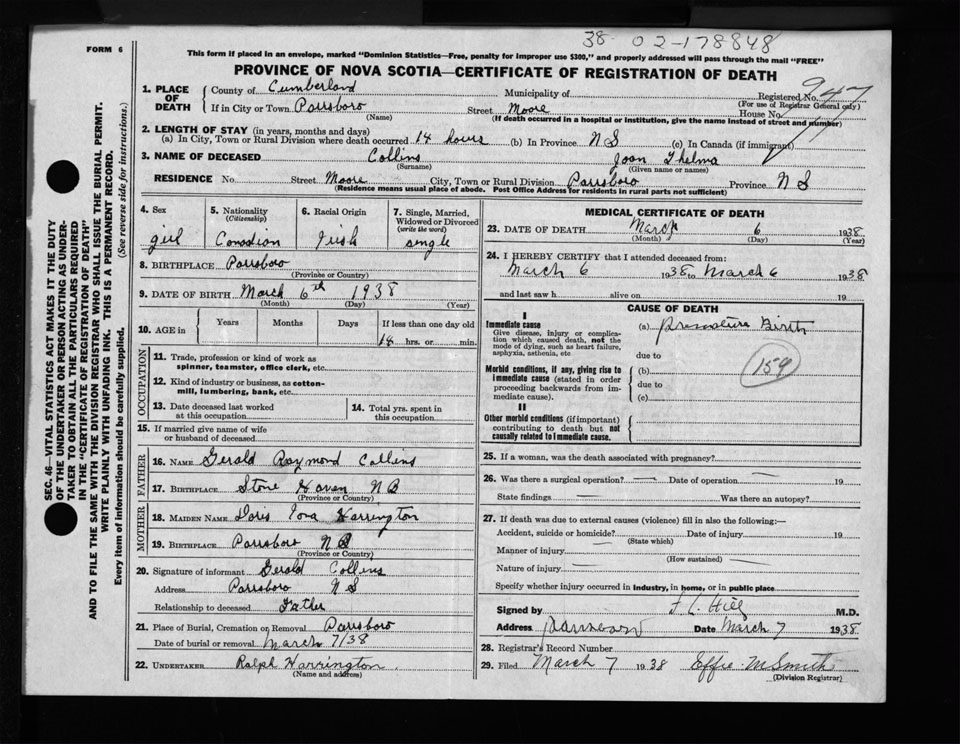 38 02-178848
FORM 6
This form if placed in an envelope, marked "Dominion Statistics—Free, penalty for improper use $300," and properly addressed will pass through the mail "FREE"
PROVINCE OF NOVA SCOTIA—CERTIFICATE OF REGISTRATION OF DEATH
947
SEC. 46—VITAL STATISTICS ACT MAKES IT THE DUTY
OF THE UNDERTAKER OR PERSON ACTING AS UNDER-
TAKER TO OBTAIN ALL THE PARTICULARS REQUIRED
IN THE "CERTIFICATE OF REGISTRATION OF DEATH"
AND TO FILE THE SAME WITH THE DIVISION REGISTRAR WHO SHALL ISSUE THE BURIAL PERMIT.
WRITE PLAINLY WITH UNFADING INK. THIS IS A PERMANENT RECORD.
Every item of information should be carefully supplied. (See reverse side for instructions.)
1. PLACE OF DEATH
County of Cumberland Municipality of Registered No.
(For use of Registrar General only)
If in City or Town Parrsboro Street Moore House No.
(Name) (If death occurred in a hospital or institution, give the name instead of street and number)
2. LENGTH OF STAY (in years, months and days)
(a) In City, Town or Rural Division where death occurred 14 hours (b) In Province N S (c) In Canada (if immigrant)
3. NAME OF DECEASED Collins Joan Thelma
(Surname) (Given name or names)
RESIDENCE No. Street Moore City, Town or Rural Division Parrsboro Province N S
(Residence means usual place of abode. Post Office Address for residents in rural parts not sufficient)
4. Sex 5. Nationality 6. Racial Origin 7. Single, Married,
(Citizenship) Widowed or Divorced
(write the word)
girl Canadian Irish single
8. BIRTHPLACE Parrsboro
(Province or Country)
9. DATE OF BIRTH March 6th 1938
(Month) (Day) (Year)
10. AGE in Years Months Days If less than one day old
14 hrs. or min.
OCCUPATION
11. Trade, profession or kind of work as
spinner, teamster, office clerk, etc.
12. Kind of industry or business, as cotton-
mill, lumbering, bank, etc.
13. Date deceased last worked
at this occupation
14. Total yrs. spent in
this occupation
15. If married give name of wife
or husband of deceased
FATHER
16. NAME Gerald Raymond Collins
17. BIRTHPLACE Stone Haven N B
(Province or Country)
MOTHER
18. MAIDEN NAME Doris Iona Harrington
19. BIRTHPLACE Parrsboro
(Province or Country)
20. Signature of informant Gerald Collins
Address Parrsboro N S
Relationship to deceased Father
21. Place of Burial, Cremation or Removal Parrsboro
Date of burial or removal March 7/38
22. UNDERTAKER Ralph Harrington
(Name and address)
MEDICAL CERTIFICATE OF DEATH
23. DATE OF DEATH March 6 1938
(Month) (Day) (Year)
24. I HEREBY CERTIFY that I attended deceased from:
March 6 1938 to March 6 1938
and last saw h alive on 19
CAUSE OF DEATH
I
Immediate cause
Give disease, injury or complica-
tion which caused death, not the
mode of dying, such as heart failure,
asphyxia, asthenia, etc
(a) Premature Birth
due to
159
Morbid conditions, if any, giving rise to
immediate cause (stated in order
proceeding backwards from im-
mediate cause).
(b)
due to
(c)
II
Other morbid conditions (if important)
contributing to death but not
causally related to immediate cause.
25. If a woman, was the death associated with pregnancy?
26. Was there a surgical operation? Date of operation 19
State findings Was there an autopsy?
27. If death was due to external causes (violence) fill in also the following:—
Accident, suicide or homicide? Date of injury 19
(State which)
Manner of injury
(How sustained)
Nature of injury
Specify whether injury occurred in industry, in home, or in public place
Signed by Hill M.D.
Address Date March 7 1938
28. Registrar's Record Number
29. Filed March 7 1938 Effie M Smith
(Division Registrar)